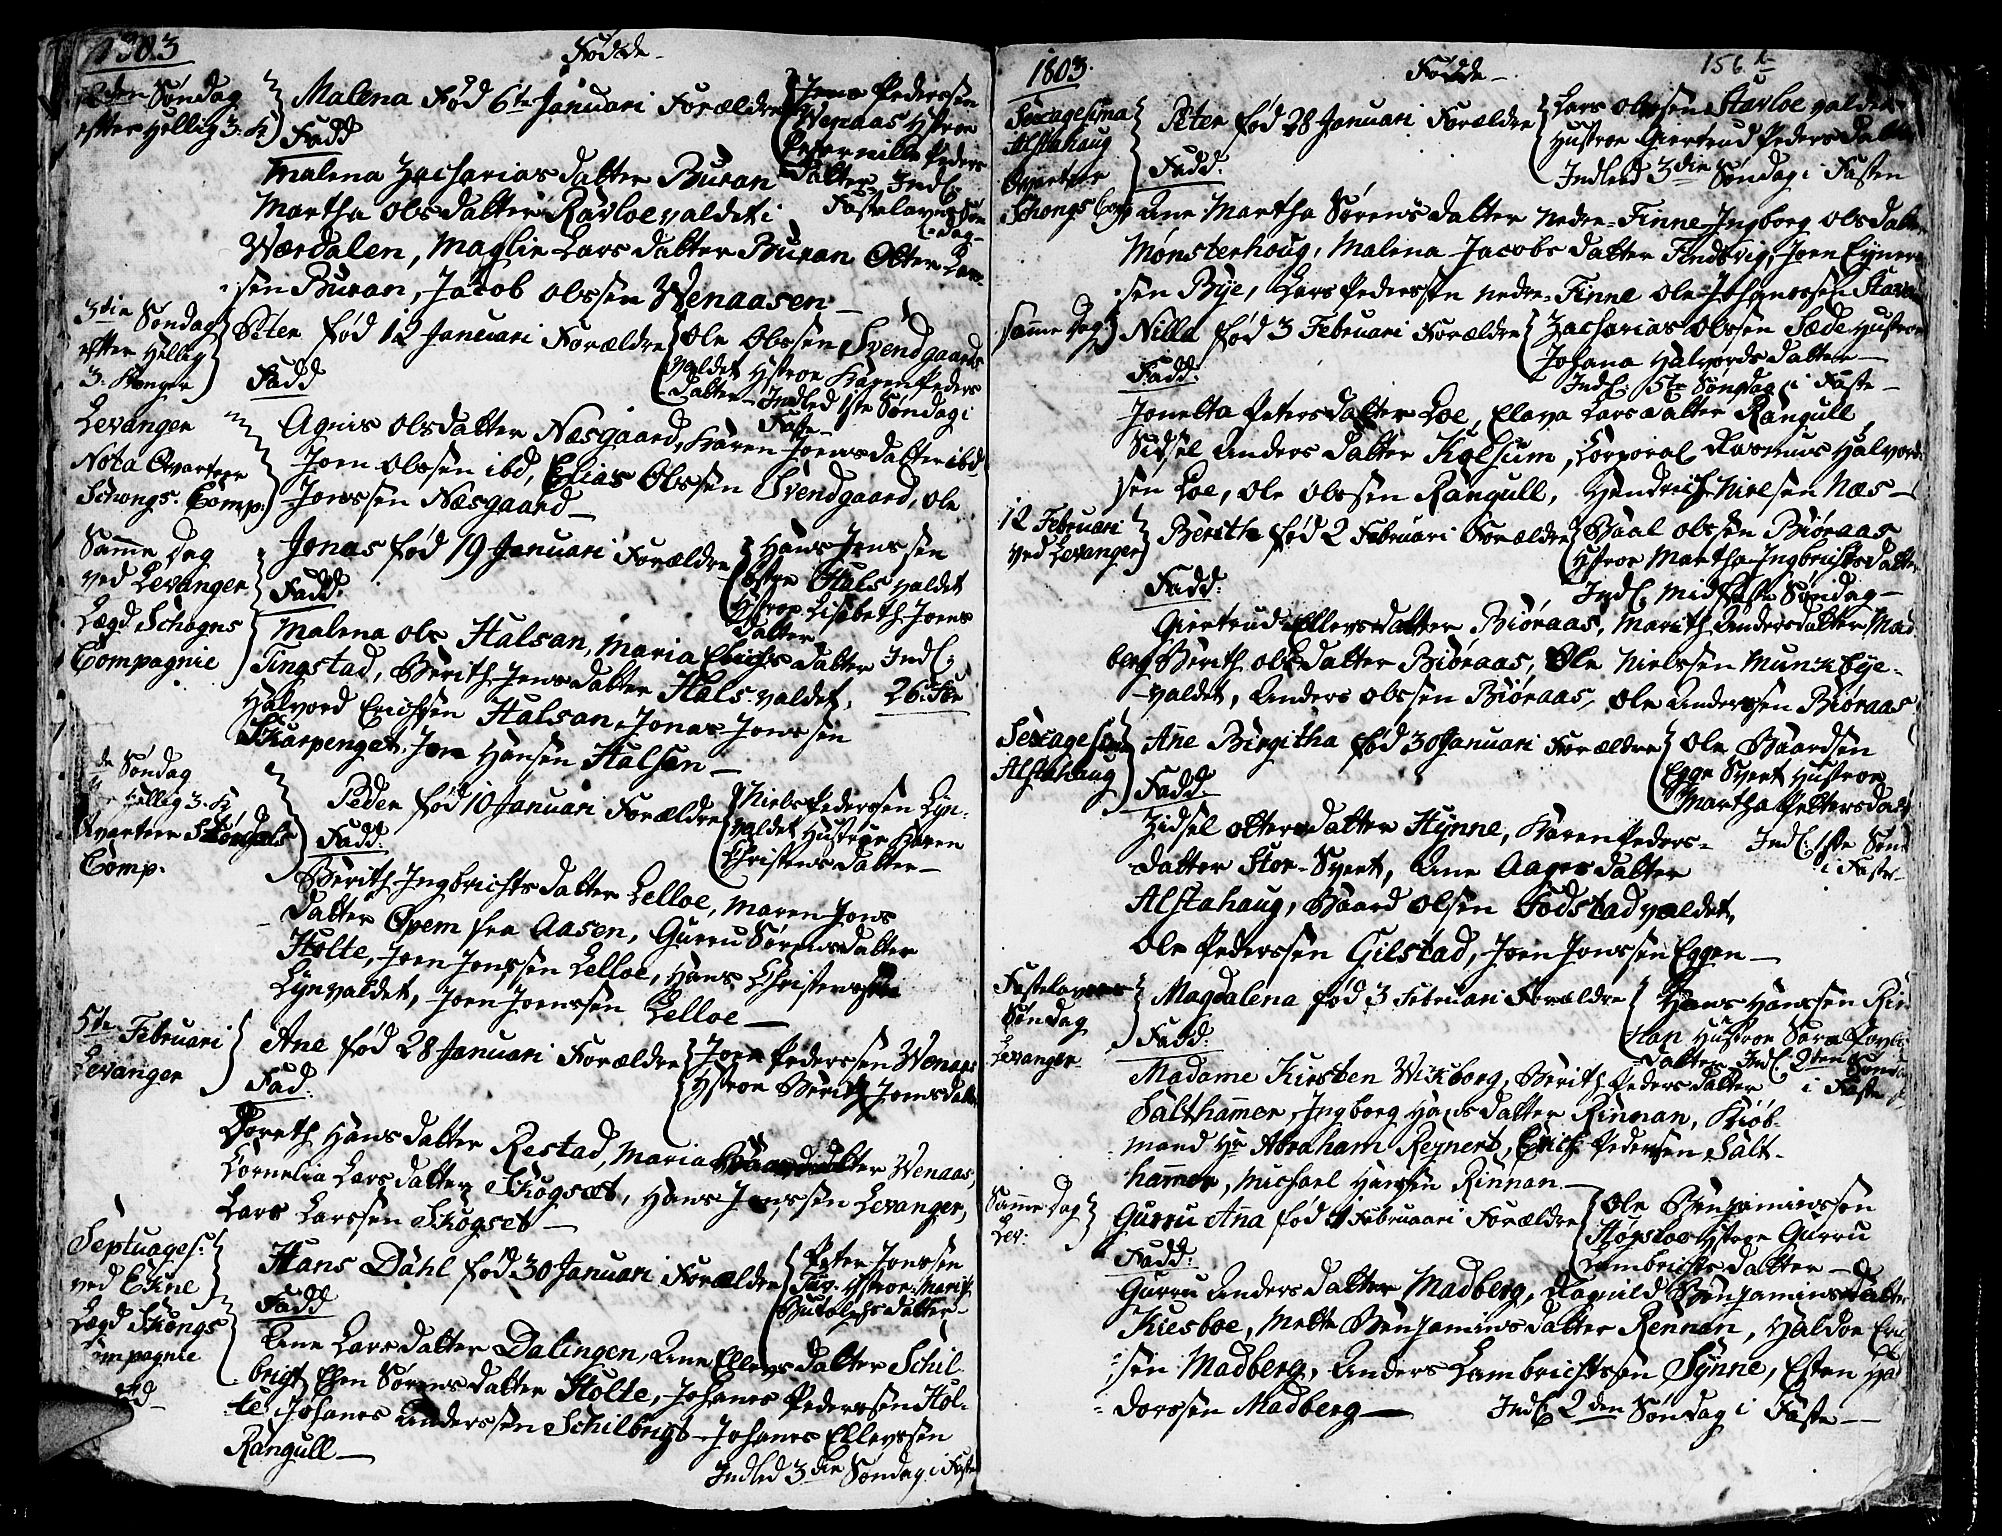 1803
Fødde
den Søndag
efter Hellig 3. K
Malena Fød 6te Januari Forældre
Jens Pederssen
Wenaas Hstroe
Petternille Peders
Datter Indl:
Fastelavens Søn
dag
Fadd
Malena Zacharias datter Buran
Martha Olsdatter Ravloevaldet i
Værdalen, Maglie Lars datter Buran Otter Lar
sen Buran, Jacob Olssen Wenaasen
3die Søndag
efter Hellig
3. Konger
Levanger
Nota Qvarteer
Schongs. Comp:
Peter fød 12 Januari Forældre
Ole Olssen Svendgaards
valdet Hstroe Karen Peders
Datter Indled 1ste Søndag i
Faste
Fadd
Agnis Olsdatter Næsgaard, Karen Joensdatter ibd
Joen Olssen ibd, Elias Olssen Svendgaard, Ole
Jonssen Næsgaard
Samme Dag
ved Levanger
Lægd Schogns
Compagnie
Jonas fød 19 Januari Forældre
Hans Jenssen
Hals valdet
Hstroe Lisebeth Joens
Datter
Fadd:
Malena Ols Halsan, Maria Erichs datter Indl:
Tingstad, Berith Jensdatter Hals valdet, 26. Febr
Halvord Erichsen Halsan, Jonas Jonssen
Skarpenget, Jon Hansen Halsen
de Søndag
Hellig 3. K
Qvarteer
Comp.
Peder fød 10 Januari Forældre
Niels Pederssen Lyn-
valdet Hustroe Karen
Christensdatter
Fadd:
Berith Ingbrichts datter Lelloe, Maren Jons
datter Opem fra Aasen, Gurru Sørensdatter
Holte, Joen Jonssen Lelloe, Hans Christenssen
Lynvaldet, Joen Joenssen Lelloe
5te Februari
Levanger
Ane fød 28 Januari Forældre
Joen Pederssen Wenaas
Hstroe Berith Jonsdatter
Fad:
Doreth Hans datter Restad, Maria datter Wenaas,
Cornelia Lars datter Skogset, Hans Jenssen Levanger,
Lars Larssen Skogset
Septuages:
ved Ekne
Lægd Skongs
ompagnie
Hans Dahl fød 30 Januari Forældre
Peter Jonssen
Hstroe Marit
datter
Fadd
Ane Lars datter Dalingen, Ane Ellevs datter Schil
brigt Sørens datter Holte, Johanes Pederssen Hol-
te, Johanes Anderssen Schilbrigt Johanes Ellevssen
Rangull
Indled 3die Søndag i Faste
1803.
Fødde
156
Sexagesima
Alstahaug
Qvarteer
Schongs Comp
Peter fød 28 Januari Forældre
Lars Olssen Stavloe valdet
Hustroe Giertrud Peders Datter
Indled 3die Søndag i Fasten
Fadd.
Ane Martha Sørens datter Nedre-Finne Ingborg Olsdatter
Mønsterhoug, Malena Jacobs datter Findsvig, Joen Eyner
sen Bye, Lars Pederssen Nedre-Finne Ole Johanessen
Samme Dag
Nilla fød 3 Februari Forældre
Zacharias Olssen Sæde Hustroe
Johana Halvords datter
Indl: 5te Søndag i Faste
Fadd:
Jonetta Peters datter Loe, Ellava Lars datter Rangull
Sidsel Anders datter Kolsum, Corporal Rasmus Halvor
sen Loe, Ole Olssen Rangull, Hendrich Nielsen Næs
12 Februari
ved Levanger
Berith fød 2 Februari Forældre
Paal Olssen Biøraas
Hstroe Martha Ingbrichtsdatter
Indl. midfaste Søndag
Fadd:
Giertrud Ellevsdatter Biøraas, Marith Andersdatter Mad
berg Berith Olsdatter Biøraas, Ole Nielssen Munkeye-
valdet, Anders Olssen Biøraas, Ole Anderssen Biøraas
Sexagesima
Alstahaug
Ane Birgitha fød 30 Januari Forældre
Ole Baardsen
Egge Svert Hustroe
Martha Pettersdat
Fadd:
Zidsel Otters datter Hynne, Karen Peders- Indl: 1ste Sønd
datter Stor-Svert, Ane Aages datter i Faste
Alstahaug, Baard Olsen Fodstadvaldet,
Ole Pederssen Gilstad, Joen Jonssen Eggen
Fastelavens
Søndag
Levanger
Magdalena fød 3 Februari Forældre
Hans Hanssen Rin
nan Hustroe Sara
Datter Indl: 2den Søndag
i Faste
Fadd:
Madame Kirsten Wikborg, Berith Peders datter
Salthamer, Ingborg Hans datter Rinnan, Kiøb-
mand Hr Abraham Reynert, Erich Pedersen Salt-
hammer, Michael Hansen Rinnan
Samme Dag
Lev:
Gurru Ana fød 1 Februari Forældre
Ole Benjaminssen
Høgsloe Hstroe Gurru
Lambrichts datter
Fadd:
Gurru Anders datter Madberg, Ragnild Benjaminsdatter
Kiesboe, Mette Benjamins datter Rennan, Haldoe Eric
sen Madberg, Anders Lambrichtssen Synne, Esten Hal
dorssen Madberg Indl 2den Søndag i Faste